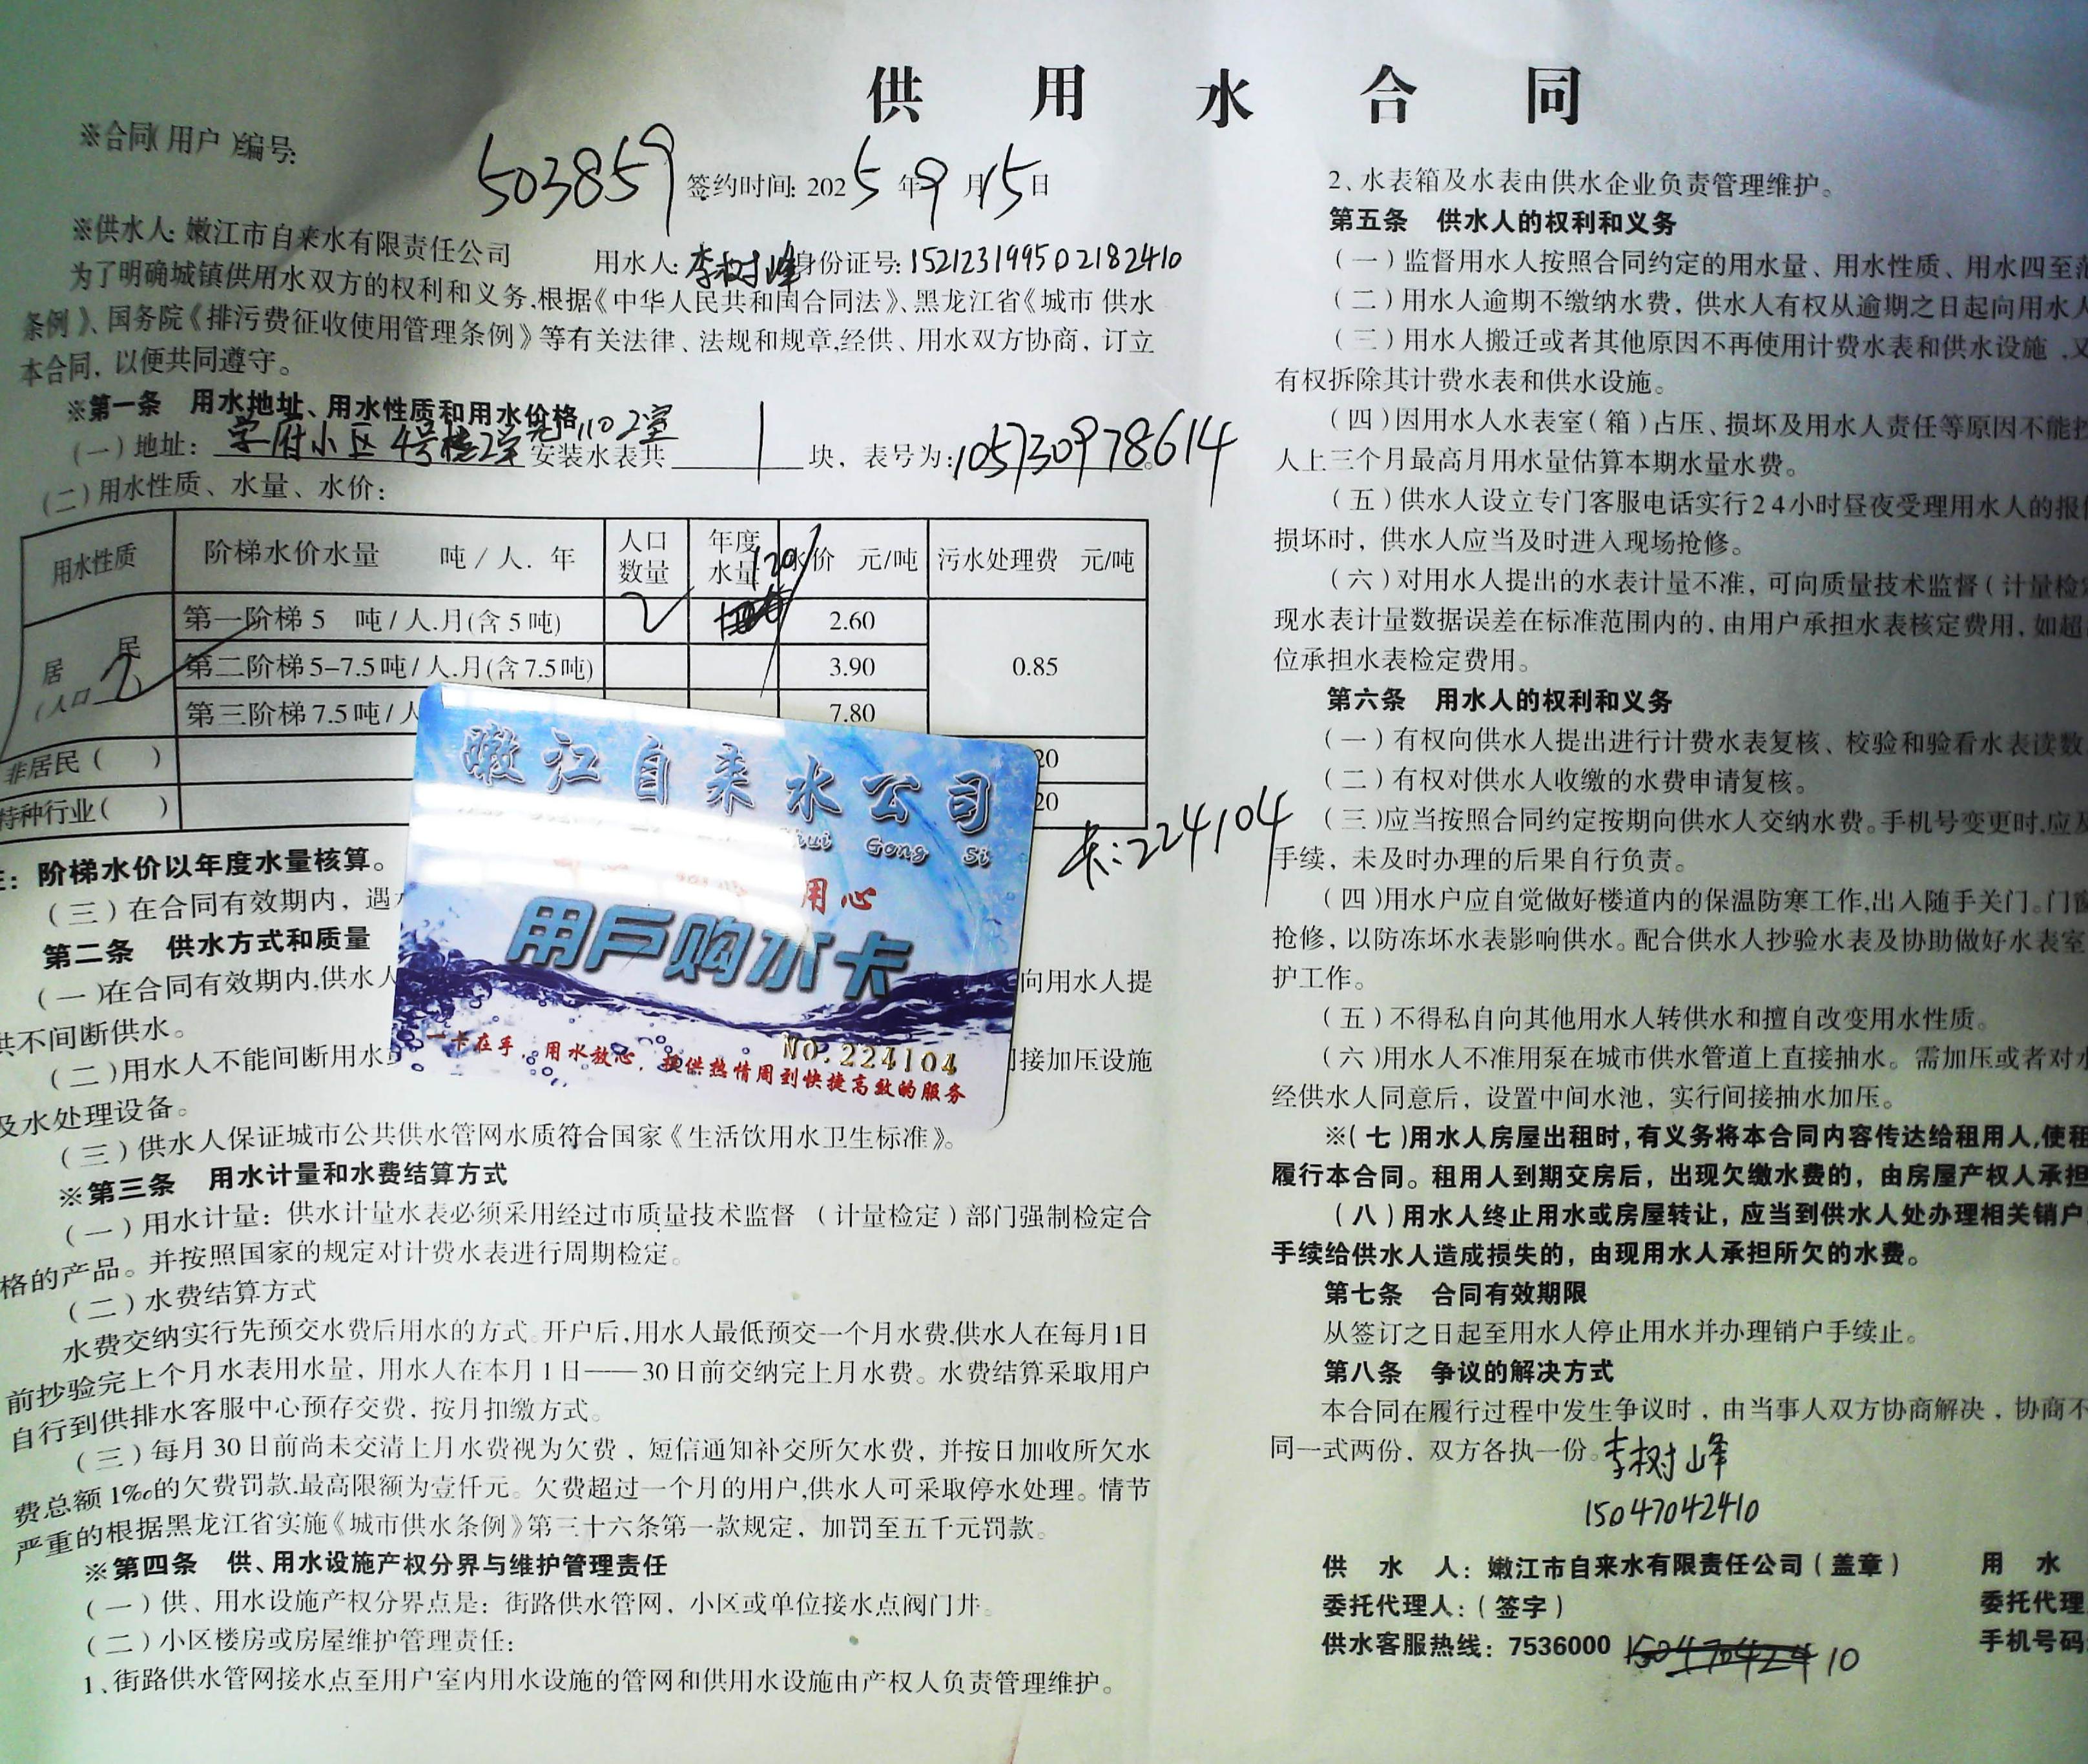 供用水合同
※合同(用户)编号: 503859 签约时间: 2025年9月15日
※供水人: 嫩江市自来水有限责任公司 用水人: 李树峰 身份证号: 152123199502182410
为了明确城镇供用水双方的权利和义务,根据《中华人民共和国合同法》、黑龙江省《城市 供水
条例》、国务院《排污费征收使用管理条例》等有关法律、法规和规章,经供、用水双方协商, 订立
本合同, 以便共同遵守。
※第一条 用水地址、用水性质和用水价格
(一)地址: 学府小区4号楼2单元1102室 安装水表共 1 块, 表号为: 105730978614
(二)用水性质、水量、水价:
用水性质 阶梯水价水量 吨/人. 年 人口数量 年度水量 水价 元/吨 污水处理费 元/吨
120
居民(人口 2 第一阶梯 5 吨/人.月(含 5 吨) 2 2.60 0.85
第二阶梯 5-7.5 吨/人.月(含 7.5 吨) 3.90
第三阶梯 7.5 吨/人 7.80
非居民( ) 20
特种行业( ) 20
卡:224104
嫩江自来水公司
Gong Si
用心
用户购水卡
NO.224104
一卡在手,用水放心,提供热情周到快捷高效的服务
: 阶梯水价以年度水量核算。
(三)在合同有效期内, 遇
第二条 供水方式和质量
(一)在合同有效期内,供水人 向用水人提
共不间断供水。
(二)用水人不能间断用水 接加压设施
及水处理设备。
(三)供水人保证城市公共供水管网水质符合国家《生活饮用水卫生标准》。
※第三条 用水计量和水费结算方式
(一)用水计量: 供水计量水表必须采用经过市质量技术监督 (计量检定)部门强制检定合
格的产品。并按照国家的规定对计费水表进行周期检定。
(二)水费结算方式
水费交纳实行先预交水费后用水的方式。开户后,用水人最低预交一个月水费,供水人在每月1日
前抄验完上个月水表用水量, 用水人在本月 1 日——30 日前交纳完上月水费。水费结算采取用户
自行到供排水客服中心预存交费, 按月扣缴方式。
(三)每月 30 日前尚未交清上月水费视为欠费, 短信通知补交所欠水费, 并按日加收所欠水
费总额 1‰的欠费罚款.最高限额为壹仟元。欠费超过一个月的用户,供水人可采取停水处理。情节
严重的根据黑龙江省实施《城市供水条例》第三十六条第一款规定, 加罚至五千元罚款。
※第四条 供、用水设施产权分界与维护管理责任
(一)供、用水设施产权分界点是: 街路供水管网, 小区或单位接水点阀门井。
(二)小区楼房或房屋维护管理责任:
1、街路供水管网接水点至用户室内用水设施的管网和供用水设施由产权人负责管理维护。
2、水表箱及水表由供水企业负责管理维护。
第五条 供水人的权利和义务
(一)监督用水人按照合同约定的用水量、用水性质、用水四至范
(二)用水人逾期不缴纳水费, 供水人有权从逾期之日起向用水人
(三)用水人搬迁或者其他原因不再使用计费水表和供水设施,又
有权拆除其计费水表和供水设施。
(四)因用水人水表室(箱)占压、损坏及用水人责任等原因不能抄
人上三个月最高月用水量估算本期水量水费。
(五)供水人设立专门客服电话实行24小时昼夜受理用水人的报修
损坏时, 供水人应当及时进入现场抢修。
(六)对用水人提出的水表计量不准, 可向质量技术监督(计量检定
现水表计量数据误差在标准范围内的, 由用户承担水表核定费用, 如超
位承担水表检定费用。
第六条 用水人的权利和义务
(一)有权向供水人提出进行计费水表复核、校验和验看水表读数
(二)有权对供水人收缴的水费申请复核。
(三)应当按照合同约定按期向供水人交纳水费。手机号变更时,应及
手续, 未及时办理的后果自行负责。
(四)用水户应自觉做好楼道内的保温防寒工作,出入随手关门。门窗
抢修, 以防冻坏水表影响供水。配合供水人抄验水表及协助做好水表室
护工作。
(五)不得私自向其他用水人转供水和擅自改变用水性质。
(六)用水人不准用泵在城市供水管道上直接抽水。需加压或者对水
经供水人同意后, 设置中间水池, 实行间接抽水加压。
※(七)用水人房屋出租时,有义务将本合同内容传达给租用人,使租
履行本合同。租用人到期交房后, 出现欠缴水费的, 由房屋产权人承担
(八)用水人终止用水或房屋转让, 应当到供水人处办理相关销户
手续给供水人造成损失的, 由现用水人承担所欠的水费。
第七条 合同有效期限
从签订之日起至用水人停止用水并办理销户手续止。
第八条 争议的解决方式
本合同在履行过程中发生争议时, 由当事人双方协商解决, 协商不
同一式两份, 双方各执一份。李树峰
15047042410
供 水 人: 嫩江市自来水有限责任公司(盖章) 用 水
委托代理人:(签字) 委托代理
供水客服热线: 7536000 15047042410 手机号码